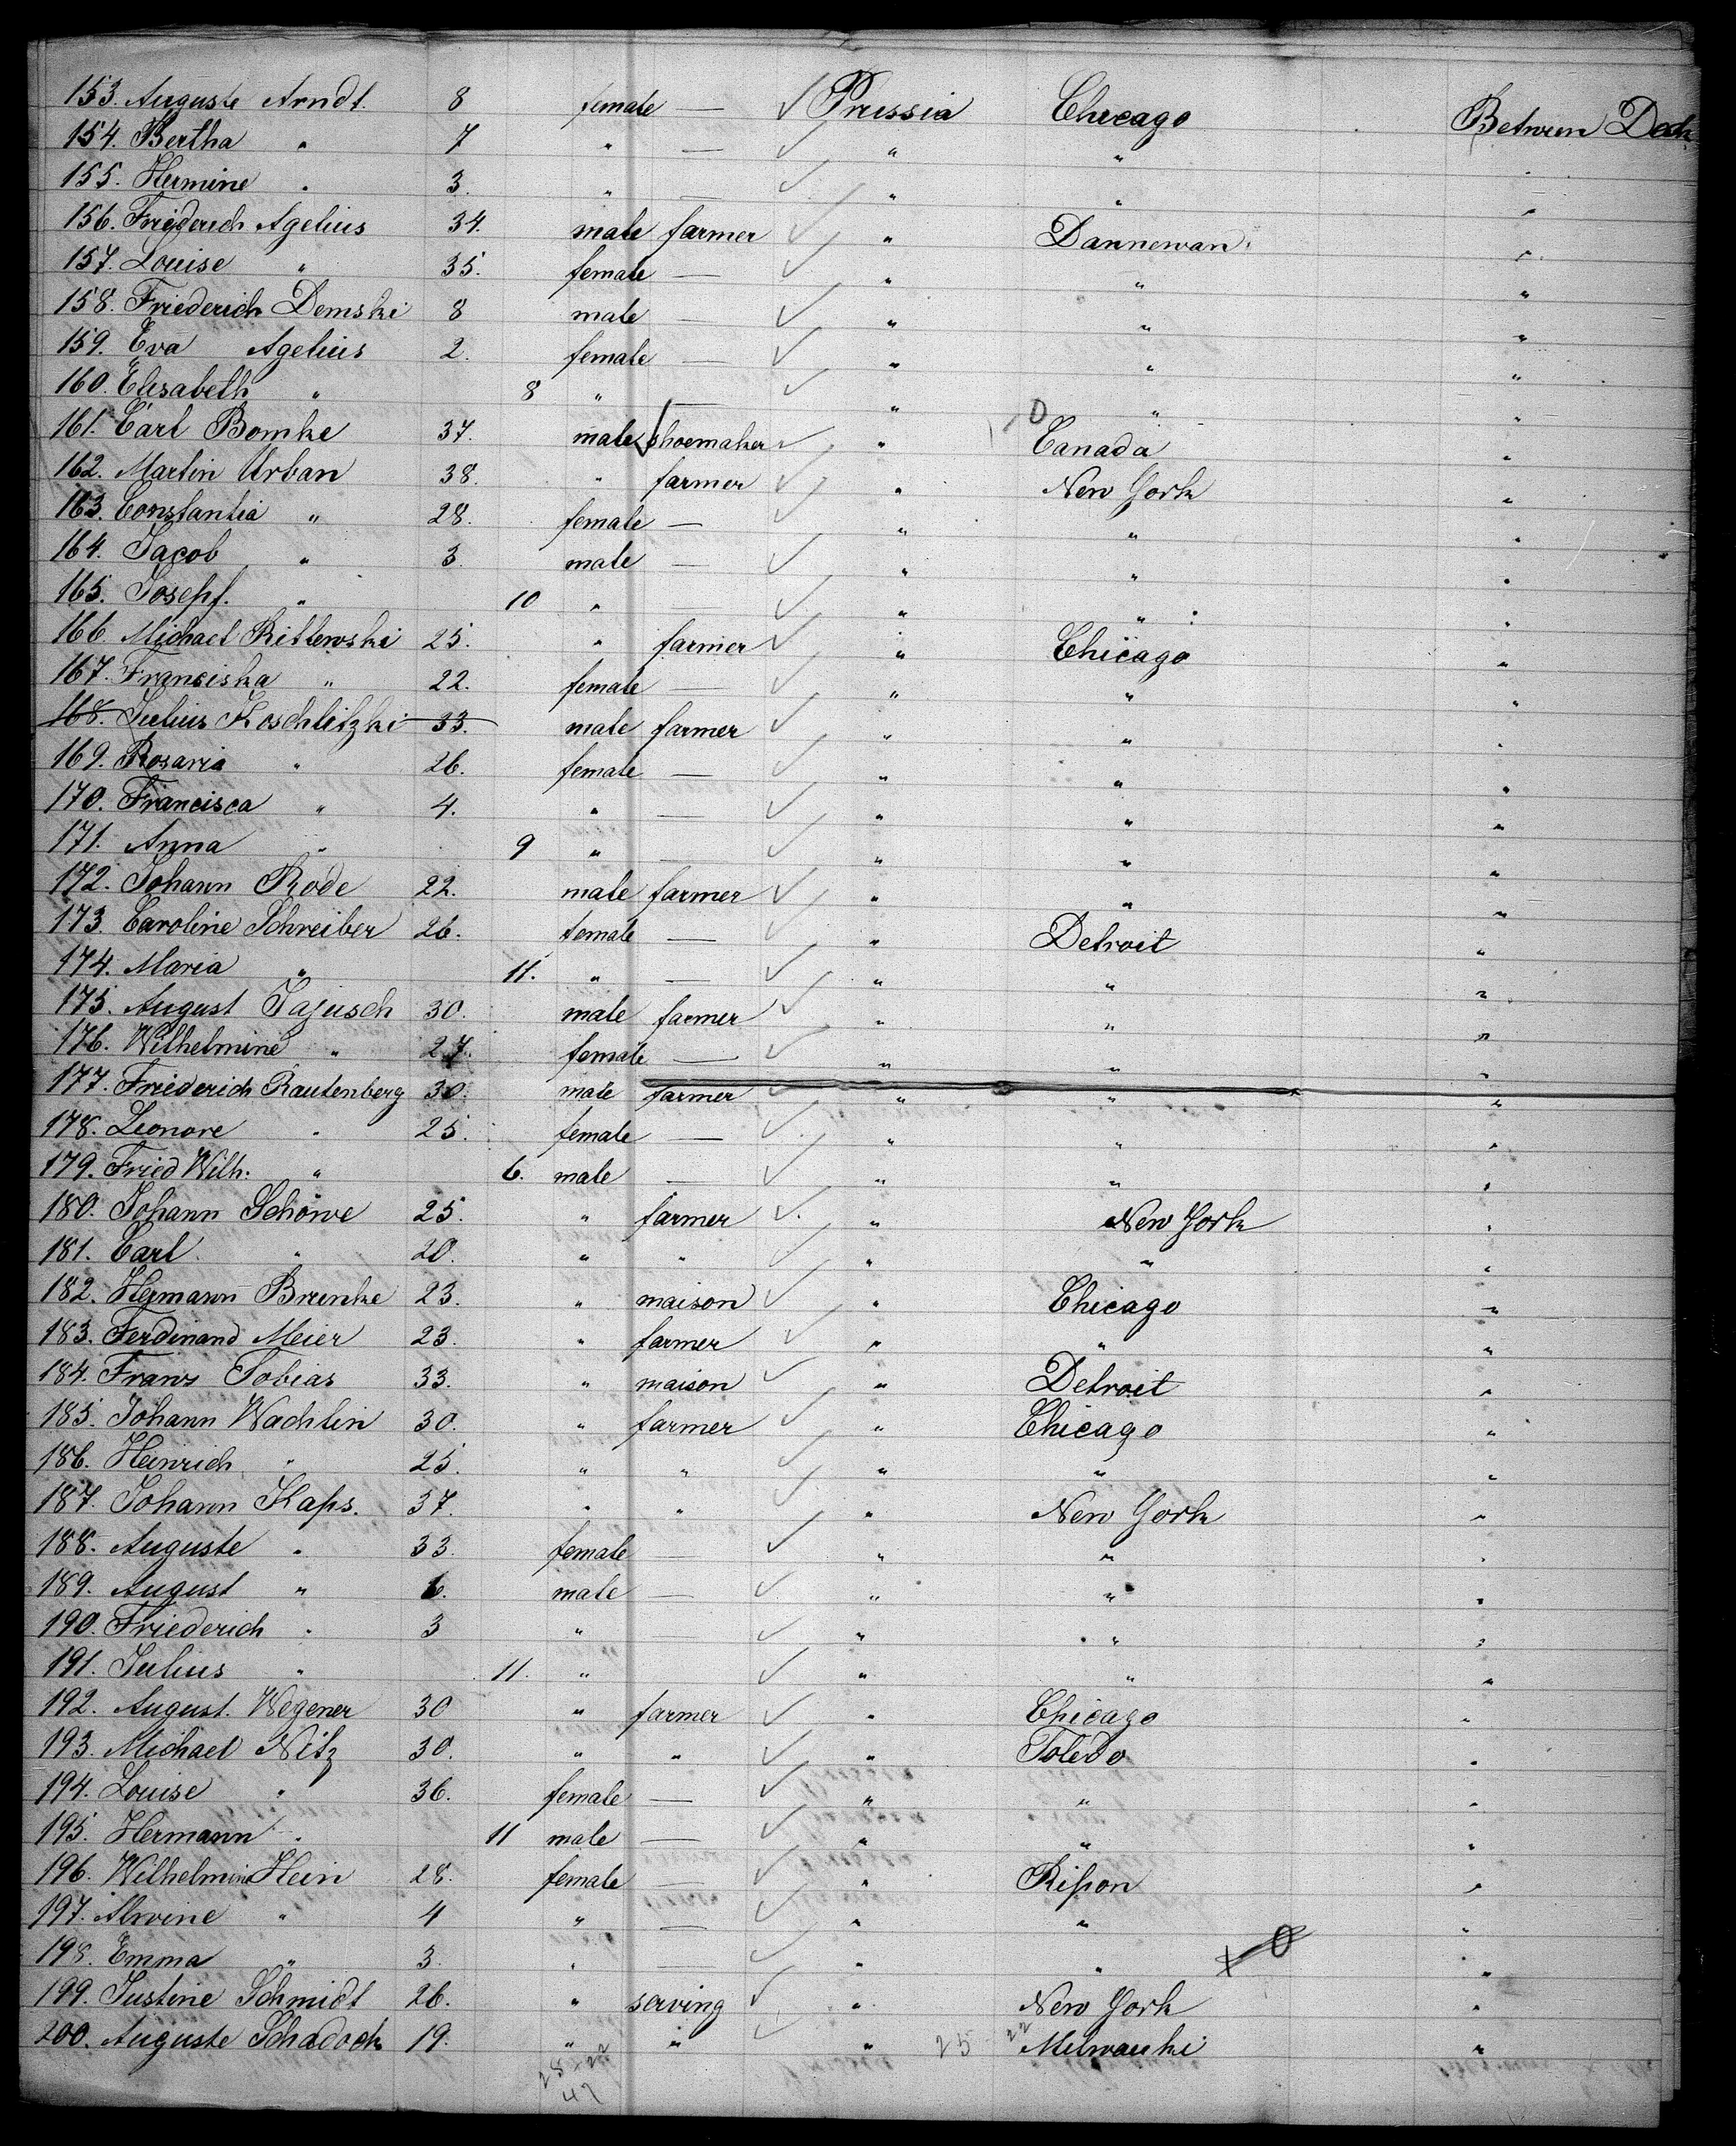 153. Auguste Arndt. 8 female — ✓ Prussia Chicago Between Deck
154. Bertha " 7 " — ✓ " " "
155. Hermine " 3. " — ✓ " " "
156. Friederich Agelius 34. male farmer ✓ " Dannewan. "
157. Louise " 35. female — ✓ " " "
158. Friederich Demski 8 male — ✓ " " "
159. Eva Agelius 2. female — ✓ " " "
160. Elisabeth " 8 " — ✓ " " "
161. Carl Bomke 37. male shoemaker ✓ " Canada "
162. Martin Urban 38. " farmer ✓ " New York "
163. Constantia " 28. female — ✓ " " "
164. Jacob " 3. male — ✓ " " "
165. Josepf. " 10 " — ✓ " " "
166. Michael Rittewski 25. " farmer ✓ " Chicago "
167. Franciska " 22. female — ✓ " " "
168. Julius Koschlitzki 33. male farmer ✓ " " "
169. Rosaria " 26. female — ✓ " " "
170. Francisca " 4. " — ✓ " " "
171. Anna " 9 " — ✓ " " "
172. Johann Rode 22. male farmer ✓ " " "
173. Caroline Schreiber 26. female — ✓ " Detroit "
174. Maria " 11. " — ✓ " " "
175. August Jajusch 30. male farmer ✓ " " "
176. Wilhelmine " 27. female — ✓ " " "
177. Friederich Rautenberg 30. male farmer ✓ " " "
178. Leonore " 25. female — ✓ " " "
179. Fried Wilh. " 6. male — ✓ " " "
180. Johann Schöwe 25. " farmer ✓ " New York "
181. Carl " 20. " " ✓ " " "
182. Hermann Brunke 23. " maison ✓ " Chicago "
183. Ferdinand Meier 23. " farmer ✓ " " "
184. Franz Tobias 33. " maison ✓ " Detroit "
185. Johann Wachlin 30. " farmer ✓ " Chicago "
186. Heinrich " 25. " " ✓ " " "
187. Johann Kaps. 37. " " ✓ " New York "
188. Auguste " 33. female — ✓ " " "
189. August " 6. male — ✓ " " "
190. Friederich " 3 " ✓ " " "
191. Julius " 11. " ✓ " " "
192. August. Wegener 30 " farmer ✓ " Chicago "
193. Michael Nitz 30. " " ✓ " Toledo "
194. Louise " 36. female — ✓ " " "
195. Hermann " 11 male — ✓ " " "
196. Wilhelmine Hein 28. female — ✓ " Rippon "
197. Alwine " 4 " — ✓ " " "
198. Emma " 3. " — ✓ " " "
199. Justine Schmidt 26. " serving ✓ " New York "
200. Auguste Schadock 19. " " ✓ " 25 22 Milwauki "
25 22
47